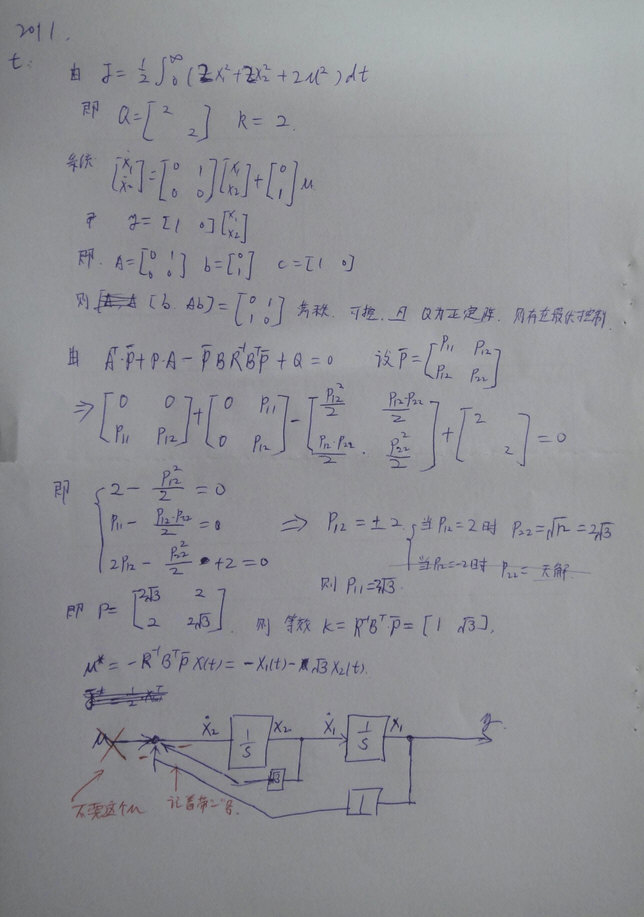 2011.
七:
由 J = 1/2 ∫₀^∞ (2x₁² + 2x₂² + 2u²) dt
即 Q = [2 ; 2] R = 2.
系统 [ẋ₁ ; ẋ₂] = [0 1 ; 0 0][x₁ ; x₂] + [0 ; 1] u
y = [1 0][x₁ ; x₂]
即. A = [0 1 ; 0 0] b = [0 ; 1] c = [1 0]
则 [b Ab] = [0 1 ; 1 0] 满秩. 可控, 且 Q为正定阵. 则存在最优控制.
由 Aᵀ·P̄ + P·A − P̄BR⁻¹BᵀP̄ + Q = 0 设 P̄ = [P₁₁ P₁₂ ; P₁₂ P₂₂]
⇒ [0 0 ; P₁₁ P₁₂] + [0 P₁₁ ; 0 P₁₂] − [P₁₂²/2 P₁₂·P₂₂/2 ; P₁₂·P₂₂/2 P₂₂²/2] + [2 ; 2] = 0
即 { 2 − P₁₂²/2 = 0
P₁₁ − P₁₂·P₂₂/2 = 0 ⇒ P₁₂ = ±2 { 当P₁₂=2时 P₂₂=√12=2√3
2P₁₂ − P₂₂²/2 + 2 = 0 当P₁₂=-2时 P₂₂= 无解.
则 P₁₁=2√3.
即 P = [2√3 2 ; 2 2√3]. 则 等效 K = R⁻¹Bᵀ·P̄ = [1 √3],
u* = −R⁻¹BᵀP̄ X(t) = −X₁(t) − √3 X₂(t).
u ẋ₂ 1/S x₂ ẋ₁ 1/S x₁ y
− − √3
不要这个u 记着带"-"号. 1